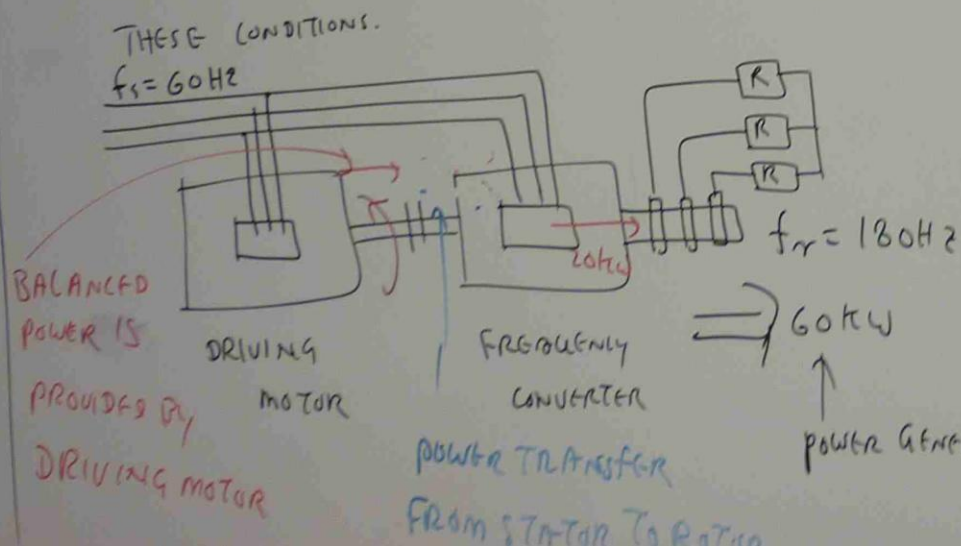 THESE CONDITIONS.
fs = 60HZ
R
R
R
fr = 180HZ
20KW
60KW
BALANCED
POWER IS
PROVIDED BY
DRIVING MOTOR
DRIVING
MOTOR
FREQUENCY
CONVERTER
POWER GENE
POWER TRANSFER
FROM STATOR TO ROTOR